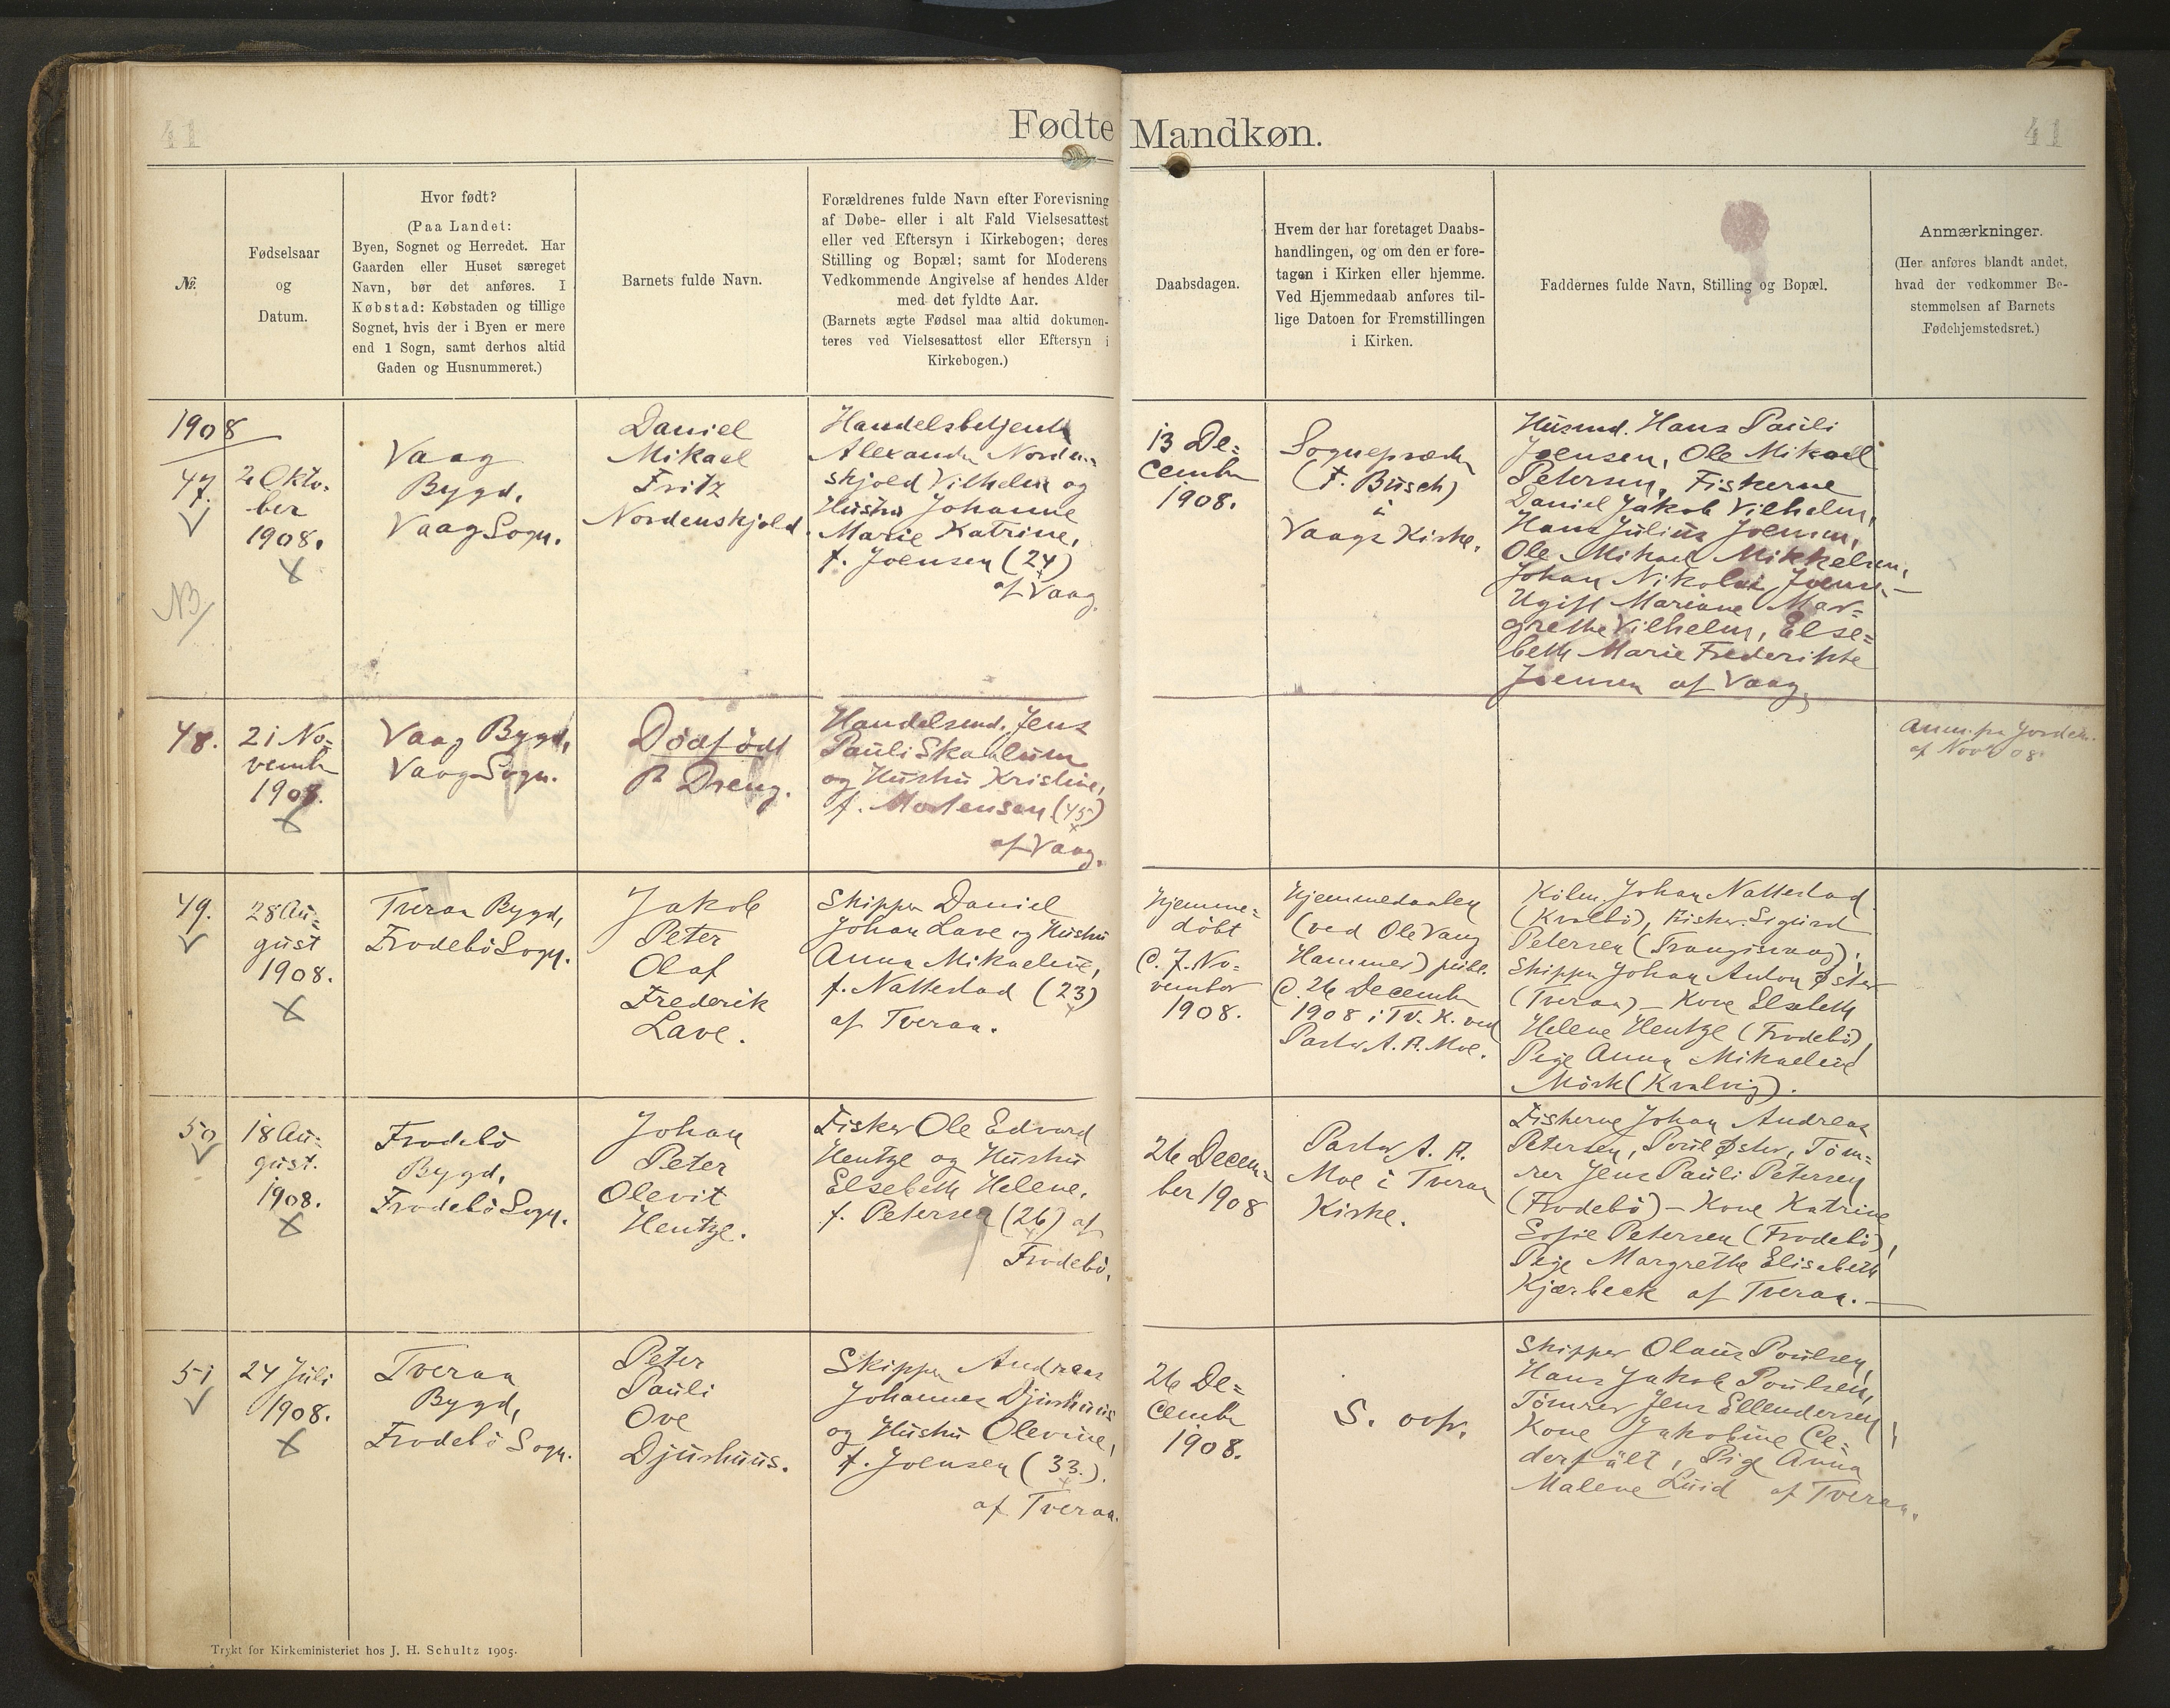 41
Fødte Mandkøn.
41
№.
Fødselsaar
og
Datum.
Hvor født?
(Paa Landet:
Byen, Sognet og Herredet. Har
Gaarden eller Huset særeget
Navn, bør det anføres. I
Købstad: Købstaden og tillige
Sognet, hvis der i Byen er mere
end 1 Sogn, samt derhos altid
Gaden og Husnummeret.)
Barnets fulde Navn.
Forældrenes fulde Navn efter Forevisning
af Døbe- eller i alt Fald Vielsesattest
eller ved Eftersyn i Kirkebogen; deres
Stilling og Bopæl; samt for Moderens
Vedkommende Angivelse af hendes Alder
med det fyldte Aar.
(Barnets ægte Fødsel maa altid dokumen-
teres ved Vielsesattest eller Eftersyn i
Kirkebogen.)
Daabsdagen.
Hvem der har foretaget Daabs-
handlingen, og om den er fore-
tagen i Kirken eller hjemme.
Ved Hjemmedaab anføres til-
lige Datoen for Fremstillingen
i Kirken.
Faddernes fulde Navn, Stilling og Bopæl.
Anmærkninger.
(Her anføres blandt andet,
hvad der vedkommer Be-
stemmelsen af Barnets
Fødehjemstedsret.)
1908
47.
NB
2 Okto-
ber
1908.
Vaag
Bygd,
Vaag Sogn.
Daniel
Mikael
Fritz
Nordenskjold.
Handelsbetjent
Alexander Norden-
skjold Vilhelm og
Hustru Johanne
Marie Katrine,
f. Joensen (24)
af Vaag.
13 De=
cember
1908.
Sognepræsten
(F. Busch)
i
Vaags Kirke.
Husmd. Hans Pauli
Joensen, Ole Mikael
Petersen, Fiskerne
Daniel Jakob Vilhelm,
Hans Julius Joensen,
Ole Mikael Mikkelsen,
Johan Nikolai Joensen –
Ugift Mariane Mar=
grethe Vilhelm, Else=
beth Marie Frederikke
Joensen af Vaag.
48.
21 No-
vember
1908.
Vaag Bygd,
Vaag Sogn.
Dødfødt
Dreng.
Handelsmd. Jens
Pauli Skaalum
og Hustru Kristine,
f. Mortensen (45)
af Vaag.
Anm. fra Jordem.
af Novb 08.
49.
28 Au=
gust
1908.
Tveraa Bygd,
Frodebö Sogn.
Jakob
Peter
Olaf
Frederik
Lave.
Skipper Daniel
Johan Lave og Hustru
Anna Mikaeline,
f. Nattestad (23)
af Tveraa.
Hjemme=
döbt
d. 7. No=
vember
1908.
Hjemmedaaben
(ved Ole Vang
Hammer) publ.
d. 26 December
1908 i Tv. K. ved
Pastor A. R. Moe.
Kölm. Johan Nattestad
(Kvalbö), Fisker Sigurd
Petersen (Trangisvaag),
Skipper Johan Anton Øster
(Tveraa) – Kone Elsebeth
Helene Hentze (Frodebö),
Pige Anna Mikaeline
Mörk (Kvalvig).
50
18 Au=
gust.
1908.
Frodebö
Bygd,
Frodebö Sogn.
Johan
Peter
Olevit
Hentze.
Fisker Ole Edvard
Hentze og Hustru
Elsebeth Helene,
f. Petersen (26) af
Frodebö.
26 Decem-
ber 1908
Pastor A. R.
Moe i Tveraa
Kirke.
Fiskerne Johan Andreas
Petersen, Poul Øster, Töm=
rer Jens Pauli Petersen
(Frodebö) – Kone Katrine
Sofie Petersen (Frodebö),
Pige Margrethe Elisabeth
Kjærbeck af Tveraa. –
51
24 Juli
1908.
Tveraa
Bygd,
Frodebö Sogn.
Peter
Pauli
Ove
Djurhuus.
Skipper Andreas
Johannes Djurhuus
og Hustru Olevine,
f. Joensen (33.).
af Tveraa.
26 De=
cember
1908.
S. ovfr.
Skipper Olaus Poulsen,
Hans Jakob Poulsen,
Tömrer Jens Ellendersen,
Kone Jakobine Ce=
derfält, Pige Anna
Malene Luid af Tveraa.
Trykt for Kirkeministeriet hos J. H. Schultz 1905.